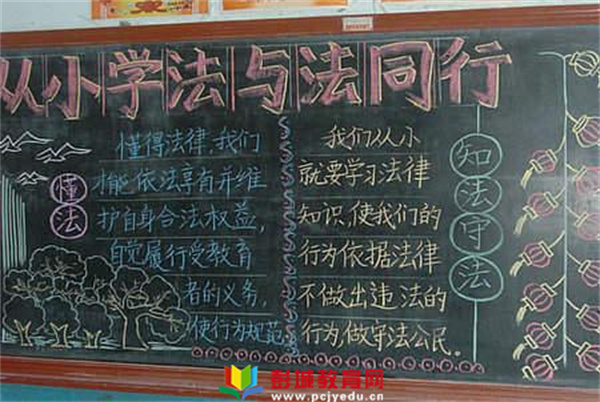 从小学法与法同行
懂法
懂得法律,我们
才能依法享有并维
护自身合法权益,
自觉履行受教育
者的义务,
使行为规范
我们从小
就要学习法律
知识,使我们的
行为依据法律
不做出违法的
行为,做守法公民。
知法守法
彭城教育网
www.pcjyedu.cn